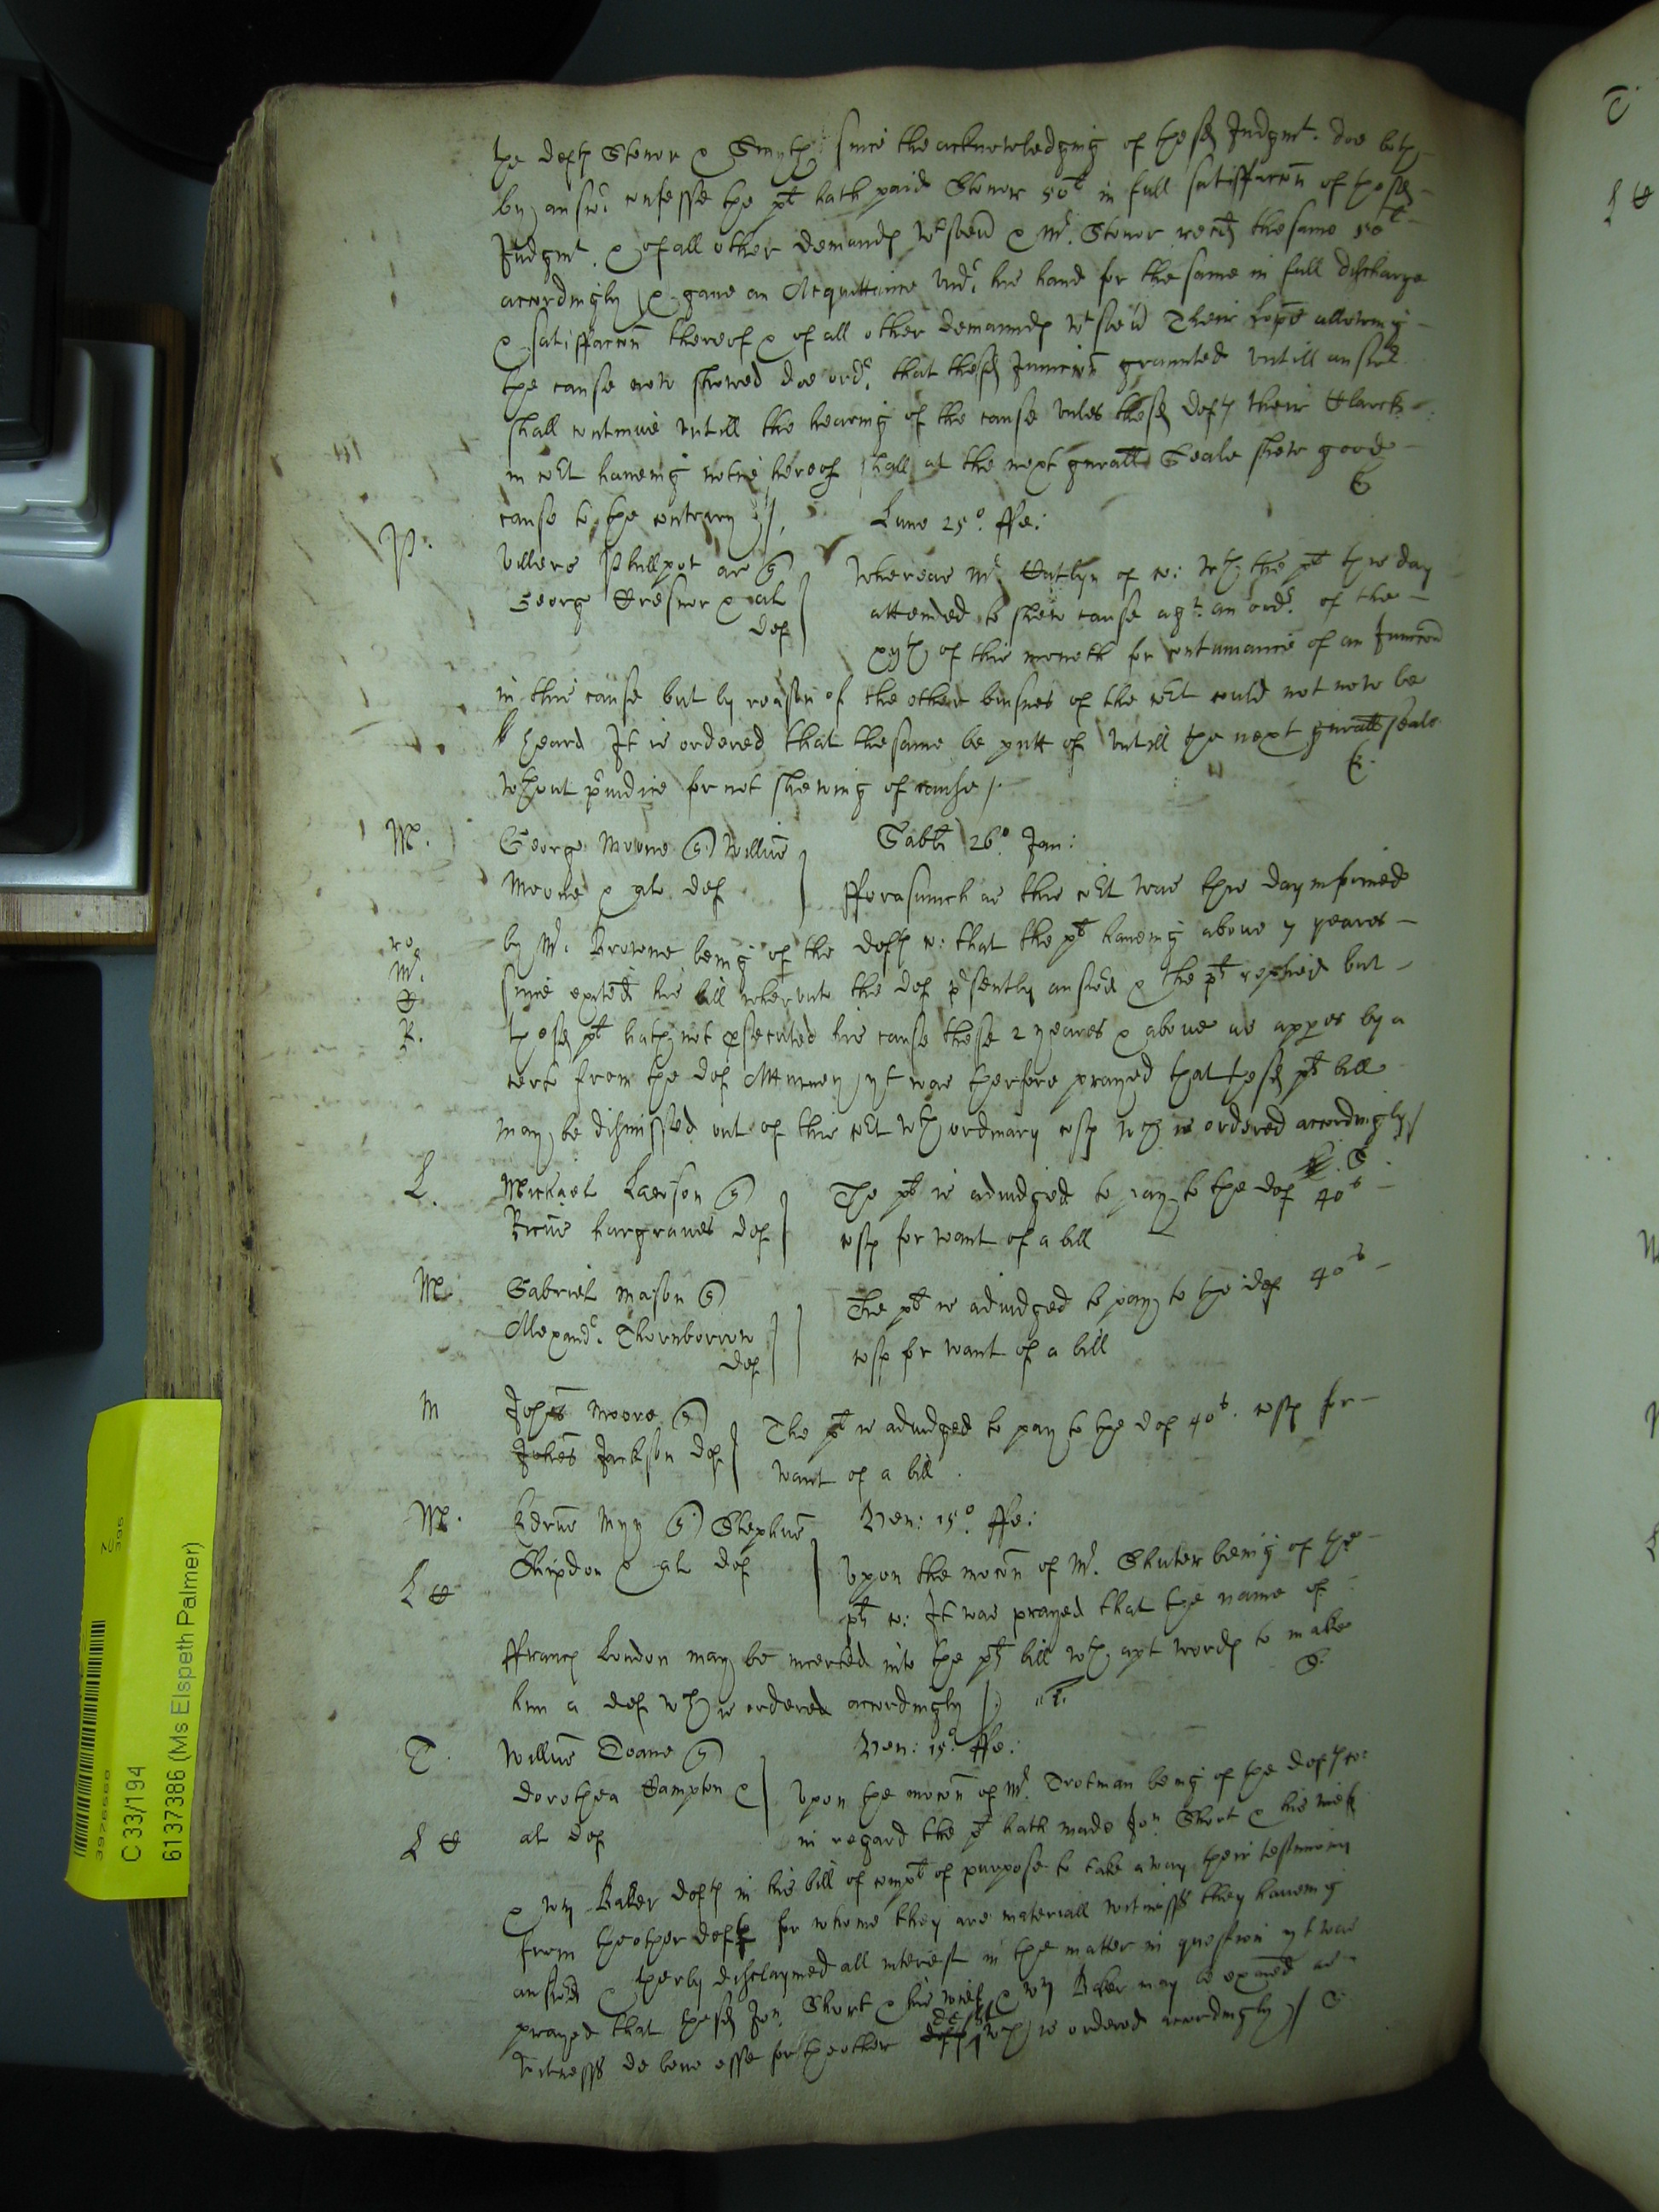 the deftꝭ Stonor & Smyth since the acknowledging of the sd Judgmt. doe both
by answr confesse the plt hath paid Stonor 50l in full satisffaccōn of the sd
Judgmt. & of all other demandꝭ & Mr. Stonor the same 50l
accordingly & gave an Acquittance undr his hand for the same in full discharge
& satisffaccōn thereof & of all other demaundꝭ Their lopps allowing
the cause now shewed doe ordr that the sd Iniuncōn graunted untill answer
shall continue untill the hearing of the cause unles the sd deftꝭ their Clarck
in cōrt haveing notice hereof shall at the next gnrall Seale shew good
cause to the contrary //
Lune 25o. ffe:
P.
Villers Phillpot ar
George & al
def
Whereas Mr. Catlyn of co: wth the plt this day
attended to shew cause agt. an ordr. of the
xyth of this moneth for contynuance of an Iniuncōn
in this cause but by reason of the other busines of the cōrt could not now be
heard It is ordered that the same be putt of untill the next gnrall seale
wthout prudice for not shewing of cause /
M.
George Moone Willm̄
Moone & als def
Sabti 26o. Jan:
fforasmuch as this cōrt was this day informed
by Mr. Browne being of the deftꝭ co: that the plt haveing above 7 yeares
Mr.
since exited his bill wherunto the def prsently answered & the plt replied but
C
R.
the sd plt hath not prosecuted his cause these 2 yeares & above as apperes by a
certe from the def Atturney yt was therfore prayed that the sd plt bill
may be dismissed out of this cōrt wth ordinary costꝭ wch is ordered accordingly /
L.
Michael Lawson
hargraves def
The plt is adiudged to pay to the def 40s
costꝭ for want of a bill
M.
Gabriel Mason
Alexandr. Thornborrow
def
The plt is adiudged to pay to the def 40s
costꝭ for want of a bill
M
Johēs Moore
Johēs Jackson def
The plt is adiudged to pay to the def 40s. costꝭ for
want of a bill
M.
Edrūs Myn Stephūs
Skipdon & als def
Ven: 15o. ffe:
L C
Upon the mocōn of Mr. Shuter being of the
plt co: It was prayed that the name of
ffrancꝭ London may be incerted into the plt bill wth apt wordꝭ to make
him a def wch is ordered accordingly /
T.
Willūs Toane
dorothea Sampton &
al def
Ven: 15o. ffe:
L C
Upon the mocōn of Mr. Trotman being of the deftꝭ co:
in regard the plt hath made Jon. Short & his wief
& Wm Baker deftꝭ in his bill of complt of purpose to take away their testimony
from the other deftꝭ for whome they are materiall witnesses they haveing
answered & therby disclaymed all interest in the matter in question yt was
prayed that the sd Jon. Short & his wief & Wm Baker may be exam̄ed as
witnesses de bene esse for the other deftꝭ wch is ordered accordingly //
C 33/194
61137386 (Ms Elspeth Palmer)